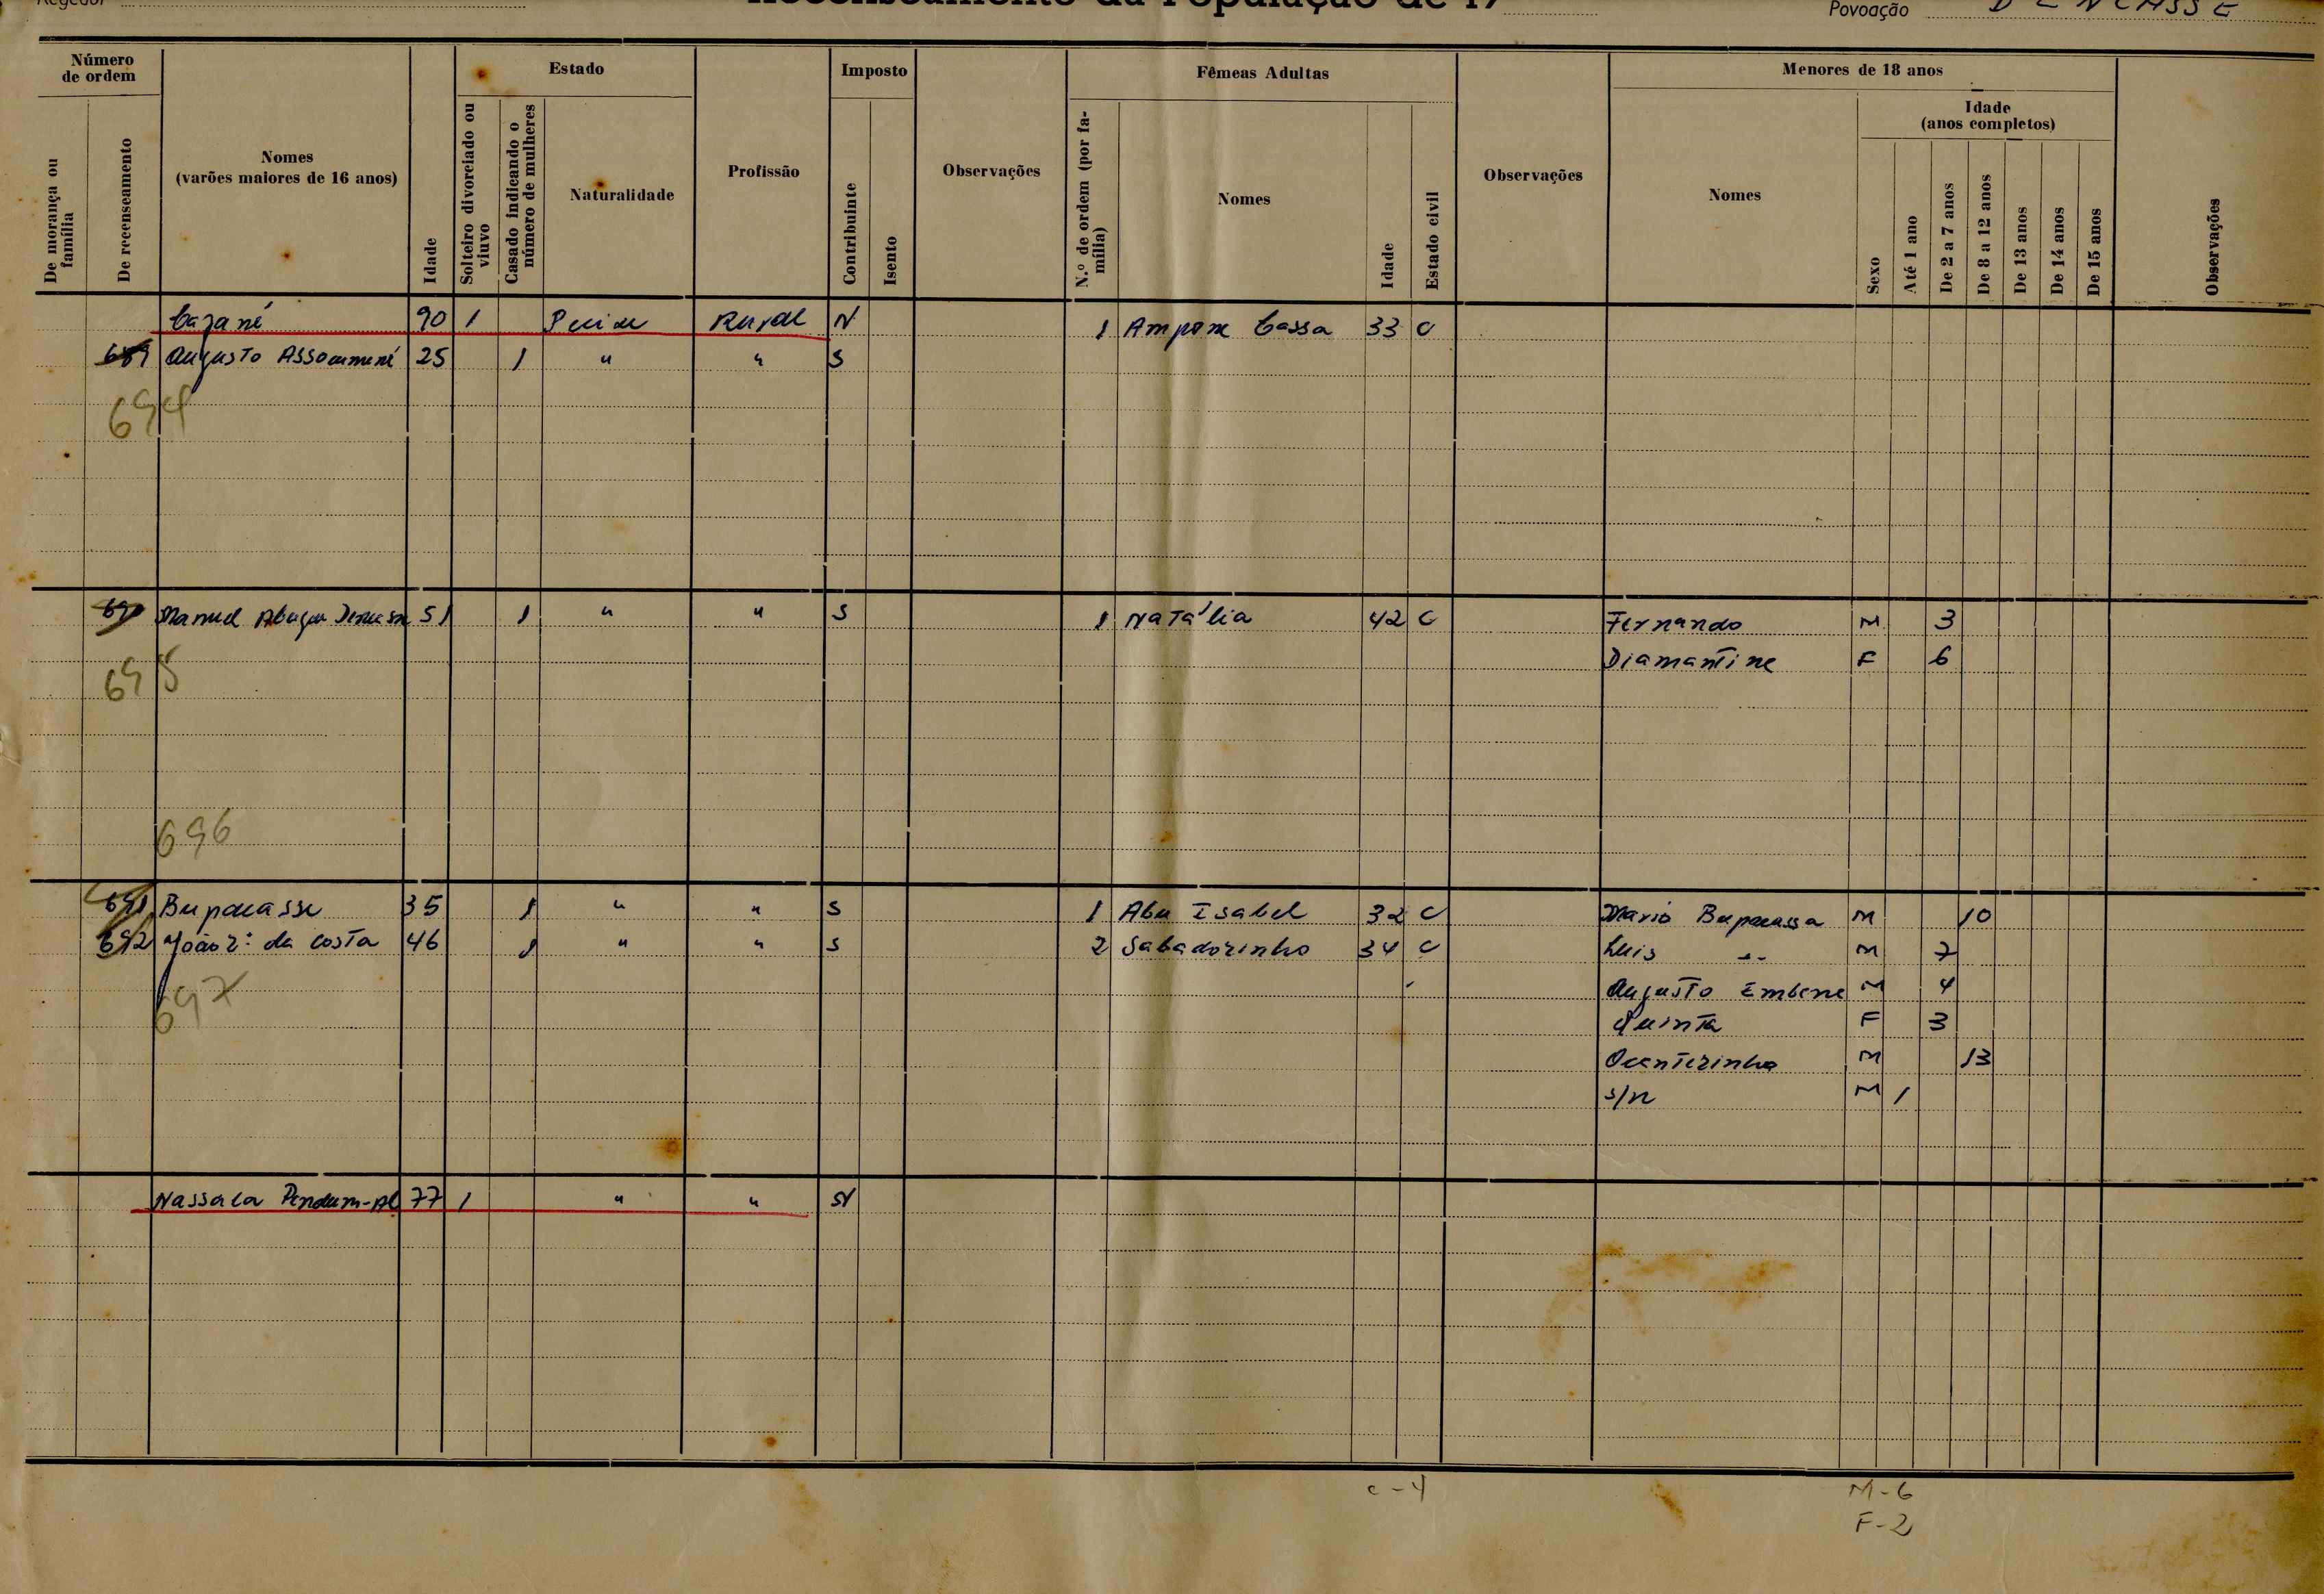 Regedor
Recenseamento da População de 19
Povoação DENCASSE
Número de ordem
De morança ou família
De recenseamento
Nomes
(varões maiores de 16 anos)
Idade
Estado
Solteiro divorciado ou viuvo
Casado indicando o número de mulheres
Naturalidade
Profissão
Imposto
Contribuinte
Isento
Observações
Fêmeas Adultas
N.º de ordem (por família)
Nomes
Idade
Estado civil
Observações
Menores de 18 anos
Nomes
Sexo
Idade
(anos completos)
Até 1 ano
De 2 a 7 anos
De 8 a 12 anos
De 13 anos
De 14 anos
De 15 anos
Observações
Cazané 90 1 Rural N 1 Ampone Cassa 33 C
689 Augusto 25 1 " " S
694
690 Manuel 51 1 " " S 1 Natália 42 C Fernando M 3
Diamantine F 6
695
696
691 Bupacasse 35 1 " " S 1 Abu Isabel 32 C Mario Bupacassa M 10
692 João da Costa 46 1 " " S 2 Sabadorinho 34 C Luis " M 7
Augusto Embene M 4
697
Quinta F 3
Ocanterinho M 13
s/n M 1
Nassala 77 1 " " N
c - 4
M - 6
F - 2